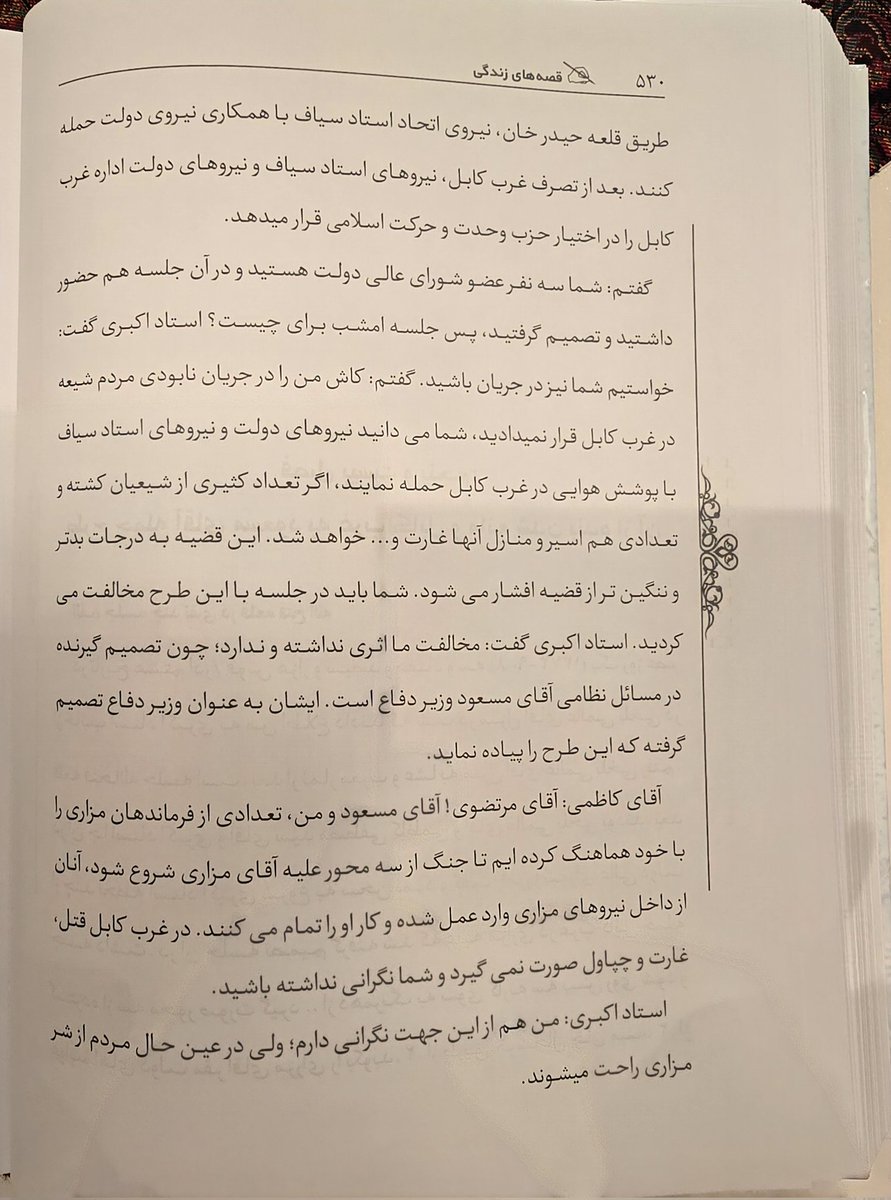 ۵۳۰ قصه‌های زندگی
طریق قلعه حیدر خان، نیروی اتحاد استاد سیاف با همکاری نیروی دولت حمله
کنند. بعد از تصرف غرب کابل، نیروهای استاد سیاف و نیروهای دولت اداره غرب
کابل را در اختیار حزب وحدت و حرکت اسلامی قرار میدهد.
گفتم: شما سه نفر عضو شورای عالی دولت هستید و در آن جلسه هم حضور
داشتید و تصمیم گرفتید، پس جلسه امشب برای چیست؟ استاد اکبری گفت:
خواستیم شما نیز در جریان باشید. گفتم: کاش من را در جریان نابودی مردم شیعه
در غرب کابل قرار نمیدادید، شما می دانید نیروهای دولت و نیروهای استاد سیاف
با پوشش هوایی در غرب کابل حمله نمایند، اگر تعداد کثیری از شیعیان کشته و
تعدادی هم اسیر و منازل آنها غارت و... خواهد شد. این قضیه به درجات بدتر
و ننگین تر از قضیه افشار می شود. شما باید در جلسه با این طرح مخالفت می
کردید. استاد اکبری گفت: مخالفت ما اثری نداشته و ندارد؛ چون تصمیم گیرنده
در مسائل نظامی آقای مسعود وزیر دفاع است. ایشان به عنوان وزیر دفاع تصمیم
گرفته که این طرح را پیاده نماید.
آقای کاظمی: آقای مرتضوی! آقای مسعود و من، تعدادی از فرماندهان مزاری را
با خود هماهنگ کرده ایم تا جنگ از سه محور علیه آقای مزاری شروع شود، آنان
از داخل نیروهای مزاری وارد عمل شده و کار او را تمام می کنند. در غرب کابل قتل،
غارت و چپاول صورت نمی گیرد و شما نگرانی نداشته باشید.
استاد اکبری: من هم از این جهت نگرانی دارم؛ ولی در عین حال مردم از شر
مزاری راحت میشوند.